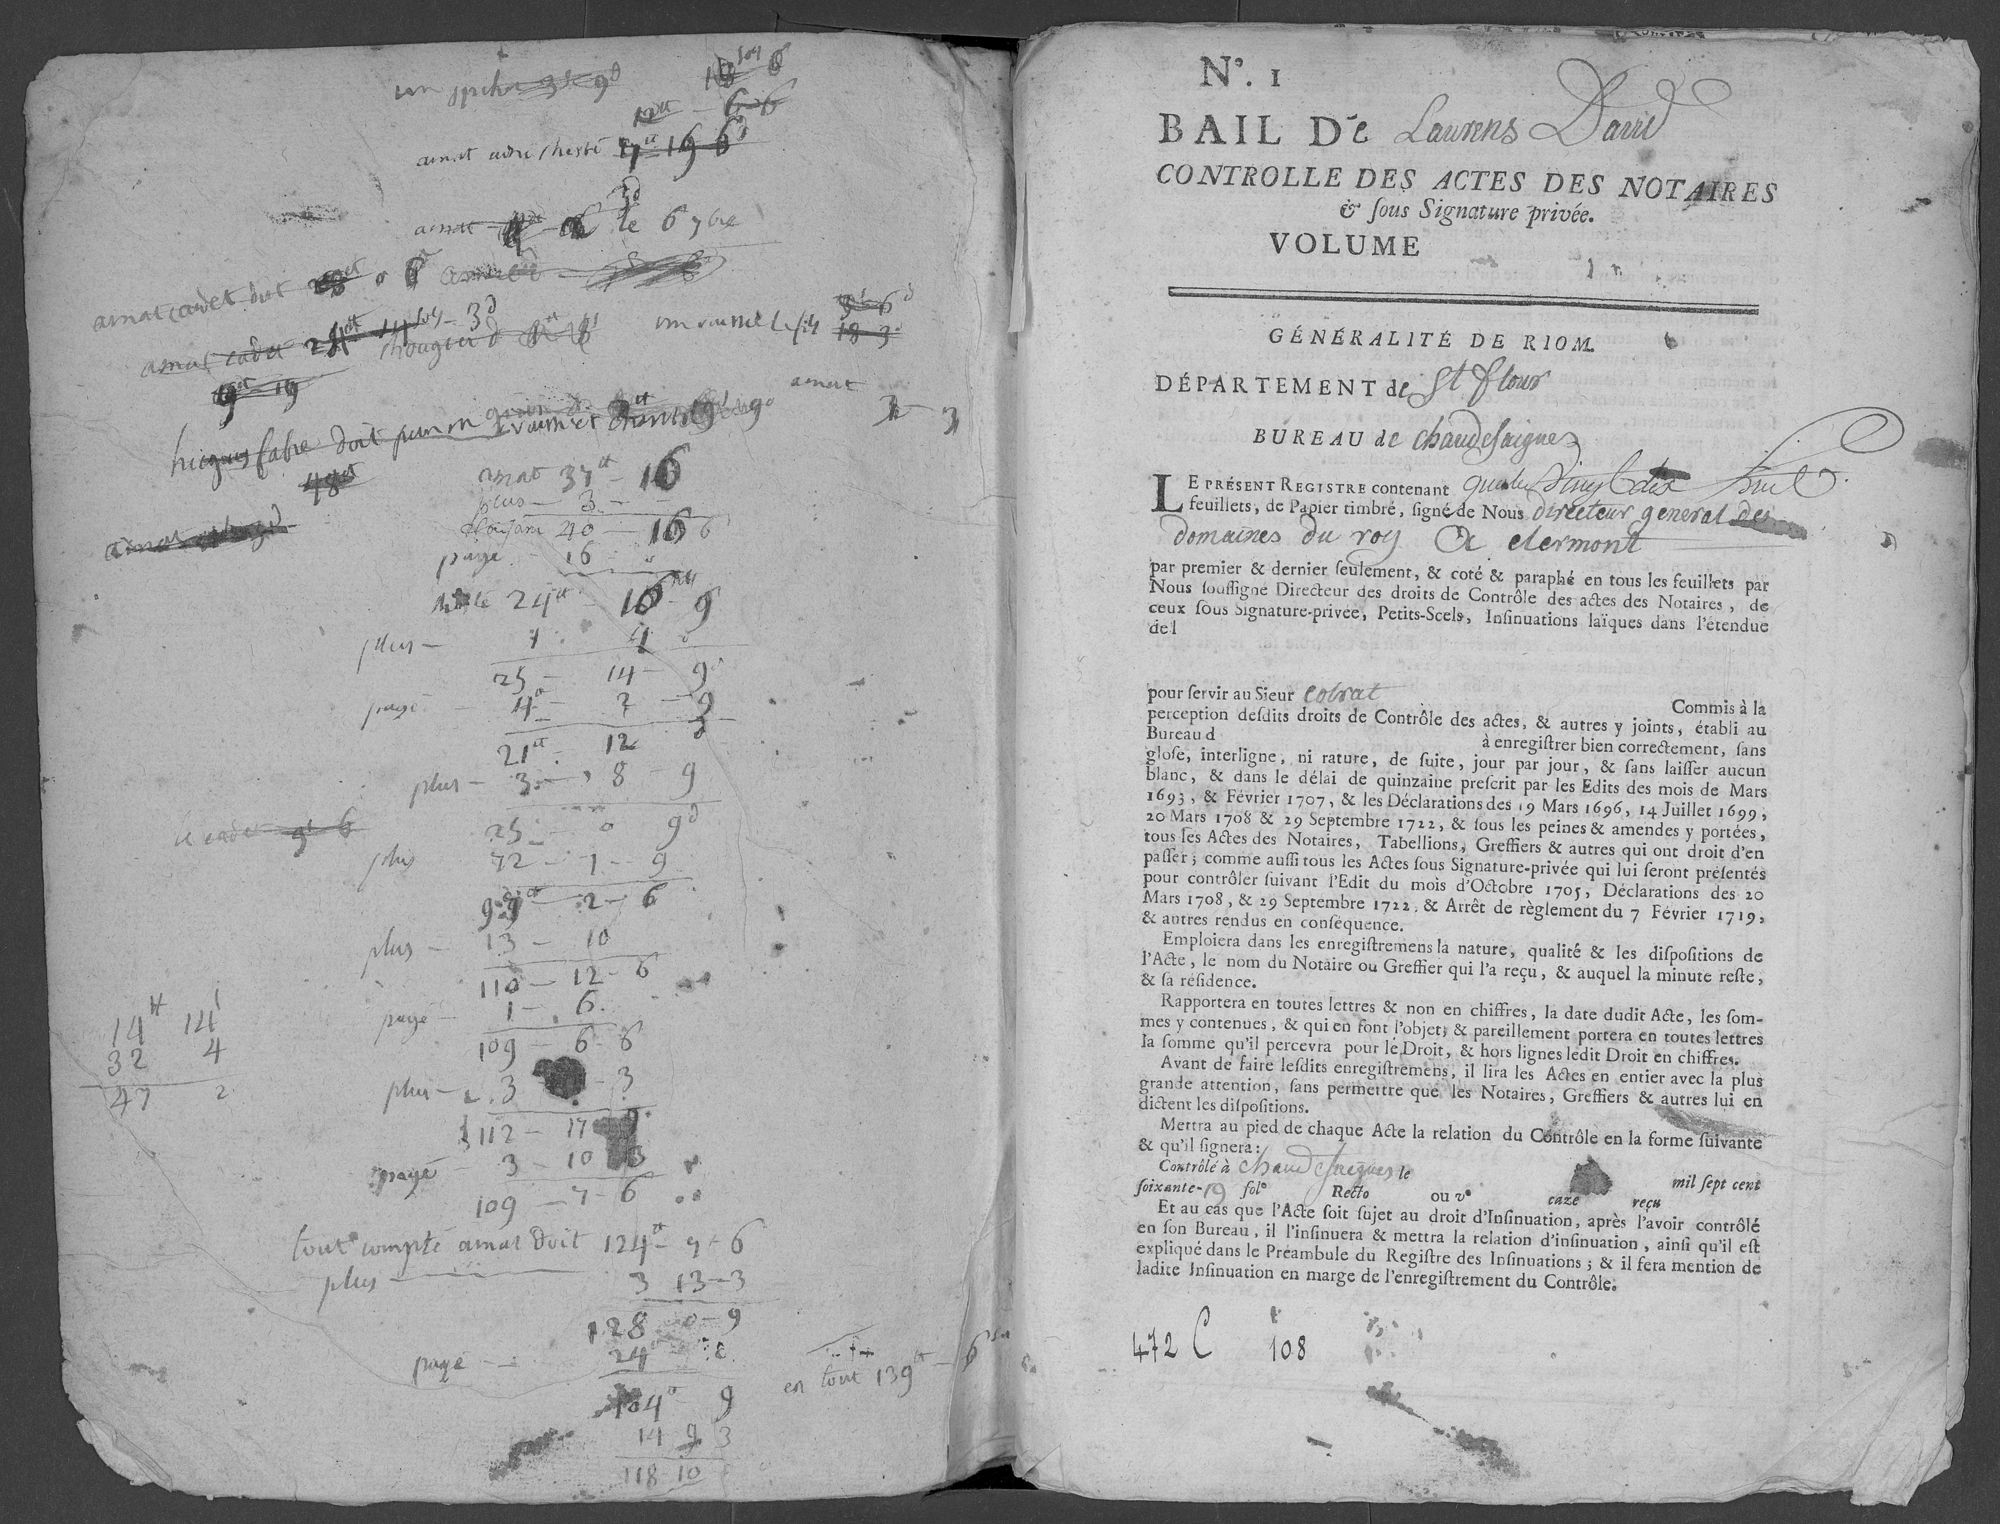 amat
amat cadet doit
amat cadet 24tt 14sols 3d
9tt 19
hugues fabre doit pour un
48tt
amat 37tt - 16
plus - 3 -
40 - 16 6
page - 16 - 0
reste 24tt - 10 - 9
plus - 1 4 0
25 - 14 - 9d
payé - 4tt - 2 - 9
21tt - 12 0
plus - 3 - 8 - 9
le cadet 9s 6
25 - 0 9d
plus 72 - 1 - 9
97tt - 2 - 6
plus - 13 - 10
110 - 12 - 6
payé - 1 - 6
109 - 6 - 6
14tt 14s
32 4
47 2
plus - 3 - 3
112 - 17 9
payé - 3 - 10 3
109 - 7 - 6
tout compté amat doit 124tt - 7 - 6
plus - 3 13 - 3
128 0 - 9
payé - 24tt
en tout 139tt - 6
104 0 9
14 9 3
118 10
N°. 1
BAIL De Laurens David
CONTROLLE DES ACTES DES NOTAIRES
& sous Signature privée.
VOLUME 1r
GÉNÉRALITÉ DE RIOM.
DÉPARTEMENT de St flour
BUREAU de chaudesaigues
LE PRÉSENT REGISTRE contenant quatre vingt dix huit
feuillets, de Papier timbré, signé de Nous directeur general des
domaines du roy A clermont
par premier & dernier seulement, & coté & paraphé en tous les feuillets par
Nous soussigné Directeur des droits de Contrôle des actes des Notaires, de
ceux sous Signature-privée, Petits-Scels, Insinuations laïques dans l'étendue
de l
pour servir au Sieur colrat Commis à la
perception desdits droits de Contrôle des actes, & autres y joints, établi au
Bureau d à enregistrer bien correctement, sans
glose, interligne, ni rature, de suite, jour par jour, & sans laisser aucun
blanc, & dans le délai de quinzaine prescrit par les Edits des mois de Mars
1693, & Février 1707, & les Déclarations des 19 Mars 1696, 14 Juillet 1699,
20 Mars 1708 & 29 Septembre 1722, & sous les peines & amendes y portées,
tous les Actes des Notaires, Tabellions, Greffiers & autres qui ont droit d'en
passer; comme aussi tous les Actes sous Signature-privée qui lui seront présentés
pour contrôler suivant l'Edit du mois d'Octobre 1705, Déclarations des 20
Mars 1708, & 29 Septembre 1722, & Arrêt de règlement du 7 Février 1719,
& autres rendus en conséquence.
Emploiera dans les enregistremens la nature, qualité & les dispositions de
l'Acte, le nom du Notaire ou Greffier qui l'a reçu, & auquel la minute reste,
& sa résidence.
Rapportera en toutes lettres & non en chiffres, la date dudit Acte, les som-
mes y contenues, & qui en font l'objet; & pareillement portera en toutes lettres
la somme qu'il percevra pour le Droit, & hors lignes ledit Droit en chiffres.
Avant de faire lesdits enregistremens, il lira les Actes en entier avec la plus
grande attention, sans permettre que les Notaires, Greffiers & autres lui en
dictent les dispositions.
Mettra au pied de chaque Acte la relation du Contrôle en la forme suivante
& qu'il signera:
Contrôlé à chaudesaigues le mil sept cent
soixante-19 fol° Recto ou v° caze reçu
Et au cas que l'Acte soit sujet au droit d'Insinuation, après l'avoir contrôlé
en son Bureau, il l'insinuera & mettra la relation d'insinuation, ainsi qu'il est
expliqué dans le Préambule du Registre des Insinuations; & il fera mention de
ladite Insinuation en marge de l'enregistrement du Contrôle.
472 C 108